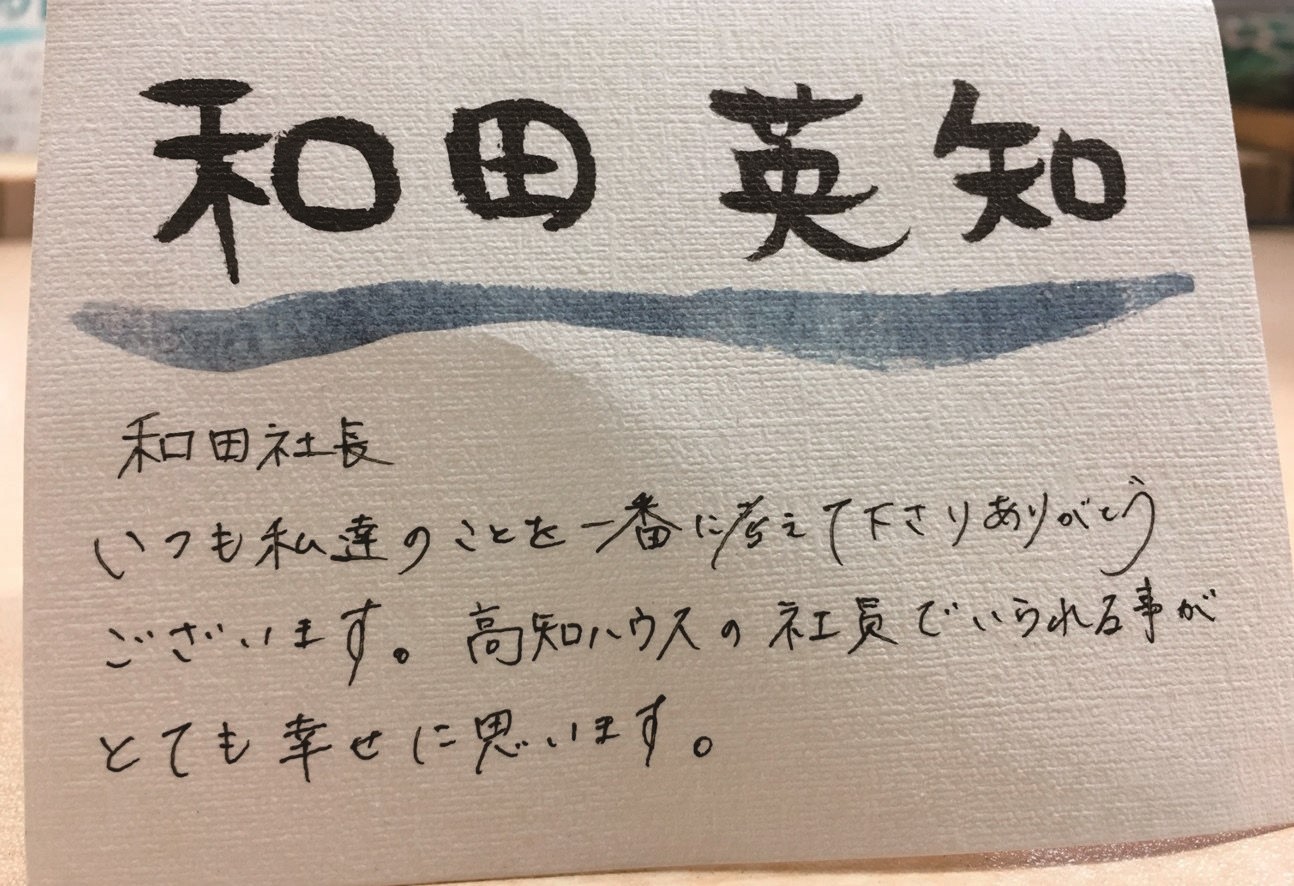 和田 英知
和田社長
いつも私達のことを一番に考えて下さりありがとう
ございます。高知ハウスの社員でいられる事が
とても幸せに思います。